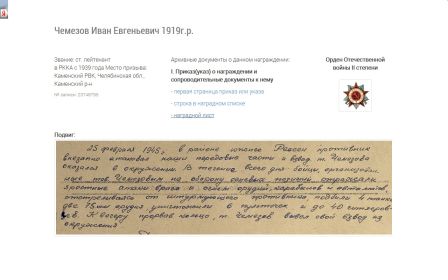 Чемезов Иван Евгеньевич 1919г.р.
Звание: ст. лейтенант
в РККА с 1939 года Место призыва:
Каменский РВК, Челябинская обл.,
Каменский р-н
№ записи:
Архивные документы о данном награждении:
I. Приказ(указ) о награждении и
сопроводительные документы к нему
- первая страница приказ или указа
- строка в наградном списке
- наградной лист
Орден Отечественной
войны II степени
Подвиг:
25 февраля 1945 г. в районе противник
внезапно атаковал наши передовые части и взвод т. Чемезова
оказался в окружении. В течение всего дня бойцы,
т. Чемезовым на оборону огневых позиций отражали
яростные атаки врага и огнем орудий, карабинов и автоматов,
противника подбили 4 танка
две 75 мм орудия уничтожили 6 пулеметов и до 40
К вечеру прорвав кольцо, т. Чемезов вывел свой взвод из
окружения.